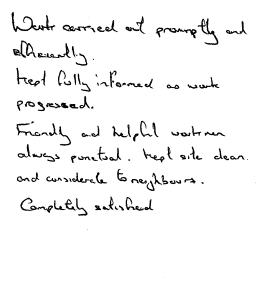 Work carried out promptly and
efficiently.
Kept fully informed as work
progressed.
Friendly and helpful workmen
always punctual. Kept site clean
and considerate to neighbours.
Completely satisfied